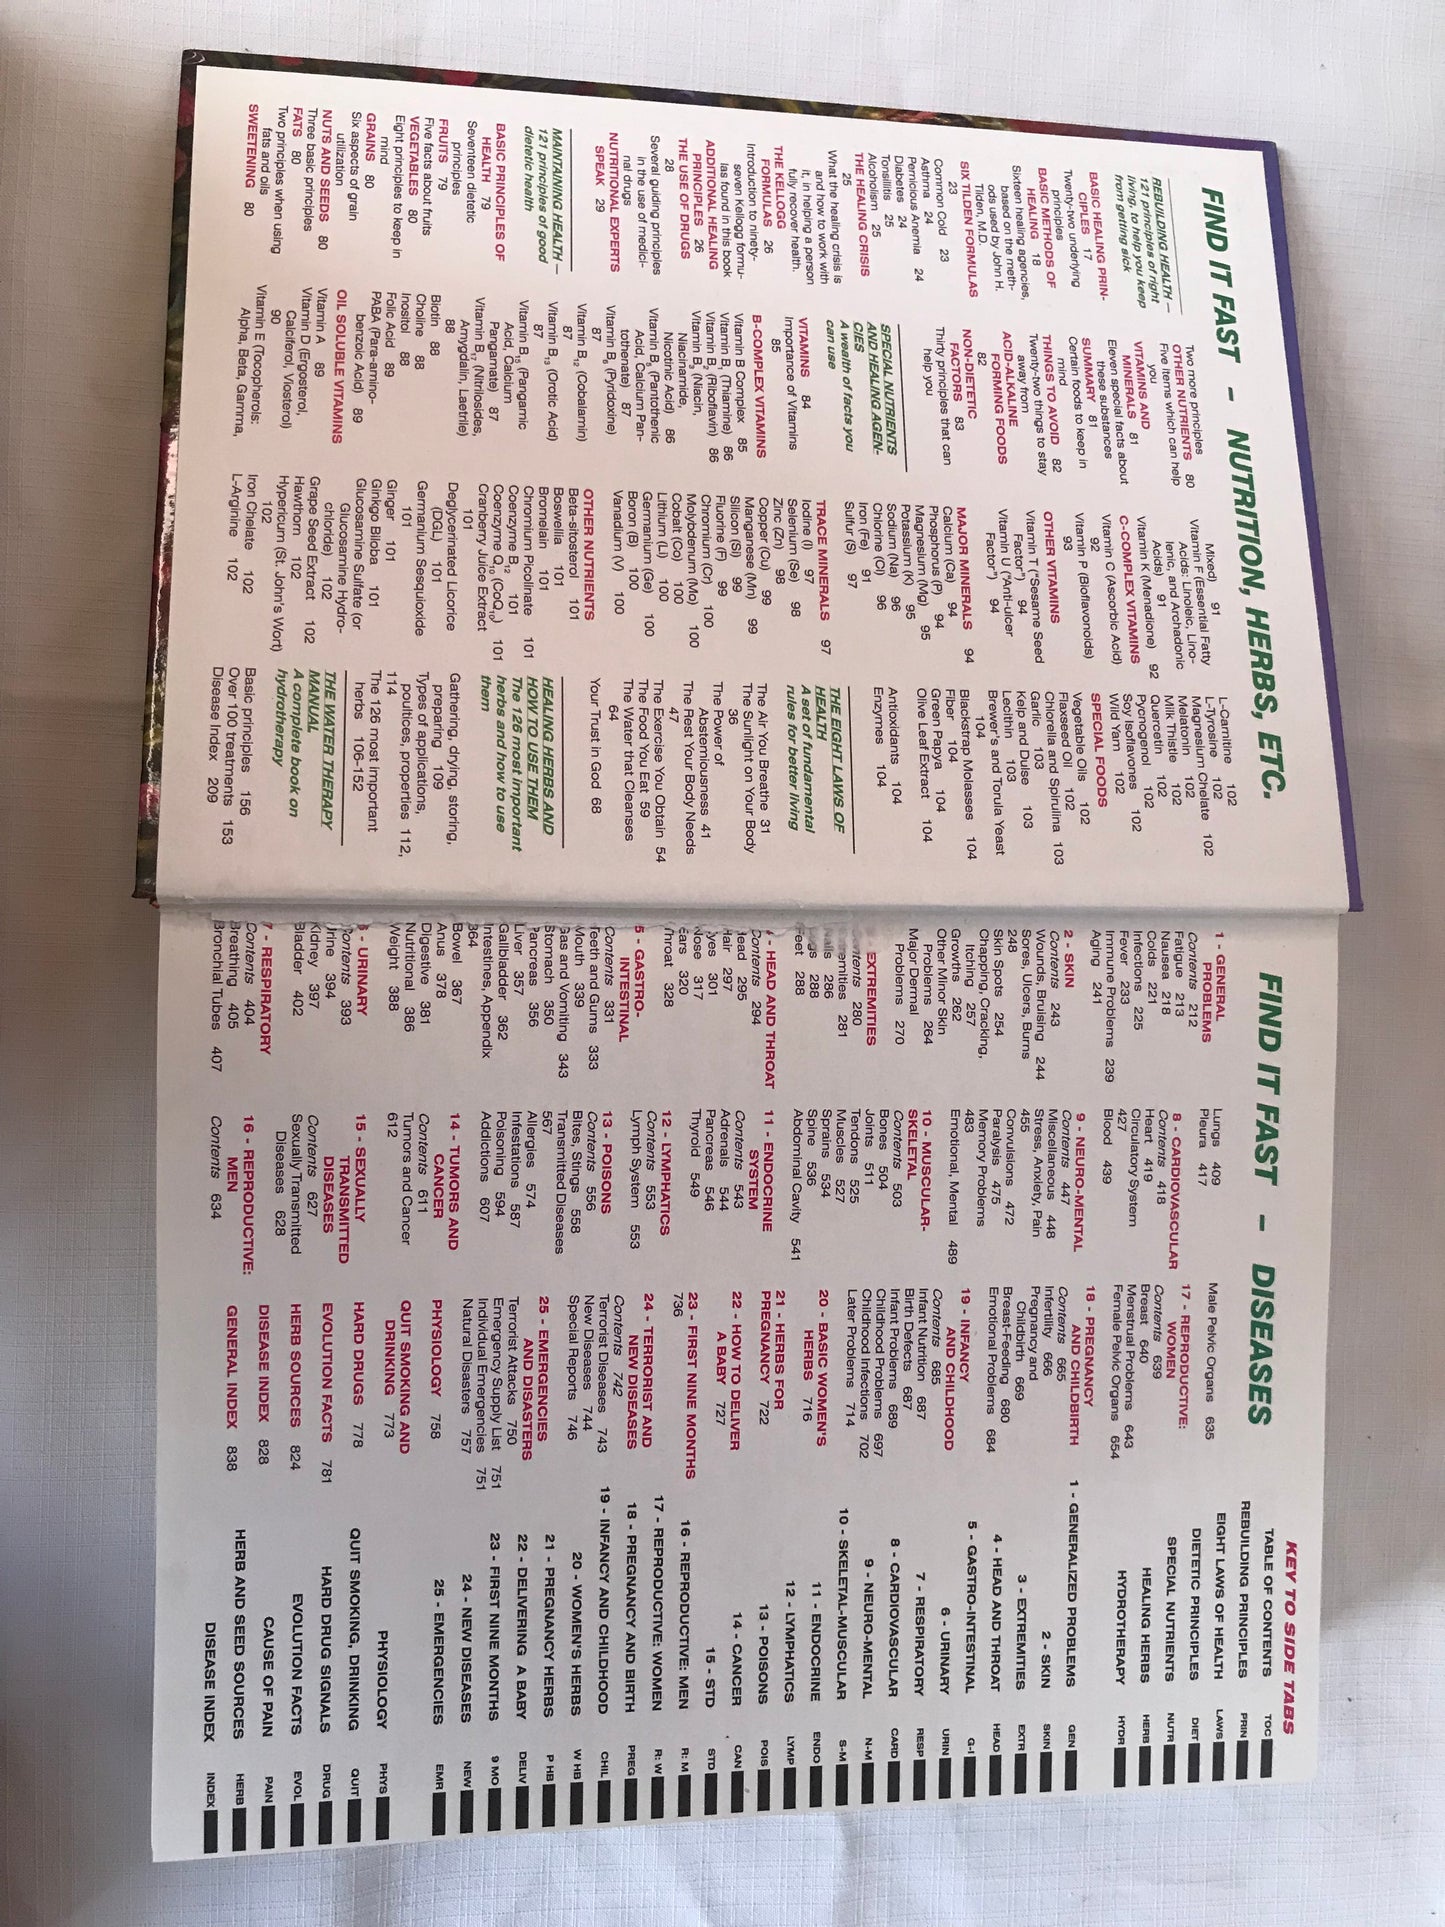 FIND IT FAST – NUTRITION, HERBS, ETC.
REBUILDING HEALTH —
121 principles of right
living, to help you keep
from getting sick
BASIC HEALING PRIN-
CIPLES 17
Twenty-two underlying
principles
BASIC METHODS OF
HEALING 18
Sixteen healing agencies,
based on the meth-
ods used by John H.
Tilden, M.D.
SIX TILDEN FORMULAS
23
Common Cold 23
Asthma 24
Pernicious Anemia 24
Diabetes 24
Tonsillitis 25
Alcoholism 25
THE HEALING CRISIS
25
What the healing crisis is
and how to work with
it, in helping a person
fully recover health.
THE KELLOGG
FORMULAS 26
Introduction to ninety-
seven Kellogg formu-
las found in this book
ADDITIONAL HEALING
PRINCIPLES 26
THE USE OF DRUGS
28
Several guiding principles
in the use of medici-
nal drugs
NUTRITIONAL EXPERTS
SPEAK 29
MAINTAINING HEALTH —
121 principles of good
dietetic health
BASIC PRINCIPLES OF
HEALTH 79
Seventeen dietetic
principles
FRUITS 79
Five facts about fruits
VEGETABLES 80
Eight principles to keep in
mind
GRAINS 80
Six aspects of grain
utilization
NUTS AND SEEDS 80
Three basic principles
FATS 80
Two principles when using
fats and oils
SWEETENING 80
Two more principles
OTHER NUTRIENTS 80
Five items which can help
you
VITAMINS AND
MINERALS 81
Eleven special facts about
these substances
SUMMARY 81
Certain foods to keep in
mind
THINGS TO AVOID 82
Twenty-two things to stay
away from
ACID-ALKALINE
FORMING FOODS
82
NON-DIETETIC
FACTORS 83
Thirty principles that can
help you
SPECIAL NUTRIENTS
AND HEALING AGEN-
CIES
A wealth of facts you
can use
VITAMINS 84
Importance of Vitamins
85
B-COMPLEX VITAMINS
Vitamin B Complex 85
Vitamin B1 (Thiamine) 86
Vitamin B2 (Riboflavin) 86
Vitamin B3 (Niacin,
Niacinamide,
Nicotinic Acid) 86
Vitamin B5 (Pantothenic
Acid, Calcium Pan-
tothenate) 87
Vitamin B6 (Pyridoxine)
87
Vitamin B12 (Cobalamin)
87
Vitamin B13 (Orotic Acid)
87
Vitamin B15 (Pangamic
Acid, Calcium
Pangamate) 87
Vitamin B17 (Nitrilosides,
Amygdalin, Laetrile)
88
Biotin 88
Choline 88
Inositol 88
Folic Acid 89
PABA (Para-amino-
benzoic Acid) 89
OIL SOLUBLE VITAMINS
Vitamin A 89
Vitamin D (Ergosterol,
Calciferol, Viosterol)
90
Vitamin E (Tocopherols:
Alpha, Beta, Gamma,
Mixed) 91
Vitamin F (Essential Fatty
Acids: Linoleic, Lino-
lenic, and Archadonic
Acids) 91
Vitamin K (Menadione) 92
C-COMPLEX VITAMINS
Vitamin C (Ascorbic Acid)
92
Vitamin P (Bioflavonoids)
93
OTHER VITAMINS
Vitamin T ("Sesame Seed
Factor") 94
Vitamin U ("Anti-ulcer
Factor") 94
MAJOR MINERALS 94
Calcium (Ca) 94
Phosphorus (P) 94
Magnesium (Mg) 95
Potassium (K) 95
Sodium (Na) 96
Chlorine (Cl) 96
Iron (Fe) 91
Sulfur (S) 97
TRACE MINERALS 97
Iodine (I) 97
Selenium (Se) 98
Zinc (Zn) 98
Copper (Cu) 99
Manganese (Mn) 99
Silicon (Si) 99
Fluorine (F) 99
Chromium (Cr) 100
Molybdenum (Mo) 100
Cobalt (Co) 100
Lithium (Li) 100
Germanium (Ge) 100
Boron (B) 100
Vanadium (V) 100
OTHER NUTRIENTS
Beta-sitosterol 101
Boswellia 101
Bromelain 101
Chromium Picolinate 101
Coenzyme B12 101
Coenzyme Q10 (CoQ10) 101
Cranberry Juice Extract
101
Deglycerinated Licorice
(DGL) 101
Germanium Sesquioxide
101
Ginger 101
Ginkgo Biloba 101
Glucosamine Sulfate (or
Glucosamine Hydro-
chloride) 102
Grape Seed Extract 102
Hawthorn 102
Hypericum (St. John's Wort)
102
Iron Chelate 102
L-Arginine 102
L-Carnitine 102
L-Tyrosine 102
Magnesium Chelate 102
Melatonin 102
Milk Thistle 102
Quercetin 102
Pycnogenol 102
Soy Isoflavones 102
Wild Yam 102
SPECIAL FOODS
Vegetable Oils 102
Flaxseed Oil 102
Chlorella and Spirulina 103
Garlic 103
Kelp and Dulse 103
Lecithin 103
Brewer's and Torula Yeast
104
Blackstrap Molasses 104
Fiber 104
Green Papya 104
Olive Leaf Extract 104
Antioxidants 104
Enzymes 104
THE EIGHT LAWS OF
HEALTH
A set of fundamental
rules for better living
The Air You Breathe 31
The Sunlight on Your Body
36
The Power of
Abstemiousness 41
The Rest Your Body Needs
47
The Exercise You Obtain 54
The Food You Eat 59
The Water that Cleanses
64
Your Trust in God 68
HEALING HERBS AND
HOW TO USE THEM
The 126 most important
herbs and how to use
them
Gathering, drying, storing,
preparing 109
Types of applications,
poultices, properties 112,
114
The 126 most important
herbs 106-152
THE WATER THERAPY
MANUAL
A complete book on
hydrotherapy
Basic principles 156
Over 100 treatments 153
Disease Index 209
FIND IT FAST – DISEASES
1 - GENERAL
PROBLEMS
Contents 212
Fatigue 213
Nausea 218
Colds 221
Infections 225
Fever 233
Immune Problems 239
Aging 241
2 - SKIN
Contents 243
Wounds, Bruising 244
Sores, Ulcers, Burns
248
Skin Spots 254
Chapping, Cracking,
Itching 257
Growths 262
Other Minor Skin
Problems 264
Major Dermal
Problems 270
EXTREMITIES
280
281
286
288
Feet 288
HEAD AND THROAT
Contents 294
295
297
301
317
320
328
5 - GASTRO-
INTESTINAL
Contents 331
Teeth and Gums 333
Mouth 339
Gas and Vomiting 343
Stomach 350
Pancreas 356
Liver 357
Gallbladder 362
Intestines, Appendix
364
Bowel 367
Anus 378
Digestive 381
Nutritional 386
Weight 388
6 - URINARY
Contents 393
Urine 394
Kidney 397
Bladder 402
7 - RESPIRATORY
Contents 404
Breathing 405
Bronchial Tubes 407
Lungs 409
Pleura 417
8 - CARDIOVASCULAR
Contents 418
Heart 419
Circulatory System
427
Blood 439
9 - NEURO-MENTAL
Contents 447
Miscellaneous 448
Stress, Anxiety, Pain
455
Convulsions 472
Paralysis 475
Memory Problems
483
Emotional, Mental 489
10 - MUSCULAR-
SKELETAL
Contents 503
Bones 504
Joints 511
Tendons 525
Muscles 527
Sprains 534
Spine 536
Abdominal Cavity 541
11 - ENDOCRINE
SYSTEM
Contents 543
Adrenals 544
Pancreas 546
Thyroid 549
12 - LYMPHATICS
Contents 553
Lymph System 553
13 - POISONS
Contents 556
Bites, Stings 558
Transmitted Diseases
567
Allergies 574
Infestations 587
Poisoning 594
Addictions 607
14 - TUMORS AND
CANCER
Contents 611
Tumors and Cancer
612
15 - SEXUALLY
TRANSMITTED
DISEASES
Contents 627
Sexually Transmitted
Diseases 628
16 - REPRODUCTIVE:
MEN
Contents 634
Male Pelvic Organs 635
17 - REPRODUCTIVE:
WOMEN
Contents 639
Breast 640
Menstrual Problems 643
Female Pelvic Organs 654
18 - PREGNANCY
AND CHILDBIRTH
Contents 665
Infertility 666
Pregnancy and
Childbirth 669
Breast-Feeding 680
Emotional Problems 684
19 - INFANCY
AND CHILDHOOD
Contents 685
Infant Nutrition 687
Birth Defects 687
Infant Problems 689
Childhood Problems 697
Childhood Infections 702
Later Problems 714
20 - BASIC WOMEN'S
HERBS 716
21 - HERBS FOR
PREGNANCY 722
22 - HOW TO DELIVER
A BABY 727
23 - FIRST NINE MONTHS
736
24 - TERRORIST AND
NEW DISEASES
Contents 742
Terrorist Diseases 743
New Diseases 744
Special Reports 746
25 - EMERGENCIES
AND DISASTERS
Terrorist Attacks 750
Emergency Supply List 751
Individual Emergencies 751
Natural Disasters 757
PHYSIOLOGY 758
QUIT SMOKING AND
DRINKING 773
HARD DRUGS 778
EVOLUTION FACTS 781
HERB SOURCES 824
DISEASE INDEX 828
GENERAL INDEX 838
KEY TO SIDE TABS
TABLE OF CONTENTS TOC
REBUILDING PRINCIPLES PRIN
EIGHT LAWS OF HEALTH LAWS
DIETETIC PRINCIPLES DIET
SPECIAL NUTRIENTS NUTR
HEALING HERBS HERB
HYDROTHERAPY HYDR
1 - GENERALIZED PROBLEMS GEN
2 - SKIN SKIN
3 - EXTREMITIES EXTR
4 - HEAD AND THROAT HEAD
5 - GASTRO-INTESTINAL G-I
6 - URINARY URIN
7 - RESPIRATORY RESP
8 - CARDIOVASCULAR CARD
9 - NEURO-MENTAL N-M
10 - SKELETAL-MUSCULAR S-M
11 - ENDOCRINE ENDO
12 - LYMPHATICS LYMP
13 - POISONS POIS
14 - CANCER CAN
15 - STD STD
16 - REPRODUCTIVE: MEN R: M
17 - REPRODUCTIVE: WOMEN R: W
18 - PREGNANCY AND BIRTH PREG
19 - INFANCY AND CHILDHOOD CHIL
20 - WOMEN'S HERBS W HB
21 - PREGNANCY HERBS P HB
22 - DELIVERING A BABY DELIV
23 - FIRST NINE MONTHS 9 MO
24 - NEW DISEASES NEW
25 - EMERGENCIES EMR
PHYSIOLOGY PHYS
QUIT SMOKING, DRINKING QUIT
HARD DRUG SIGNALS DRUG
EVOLUTION FACTS EVOL
CAUSE OF PAIN PAIN
HERB AND SEED SOURCES HERB
DISEASE INDEX INDEX